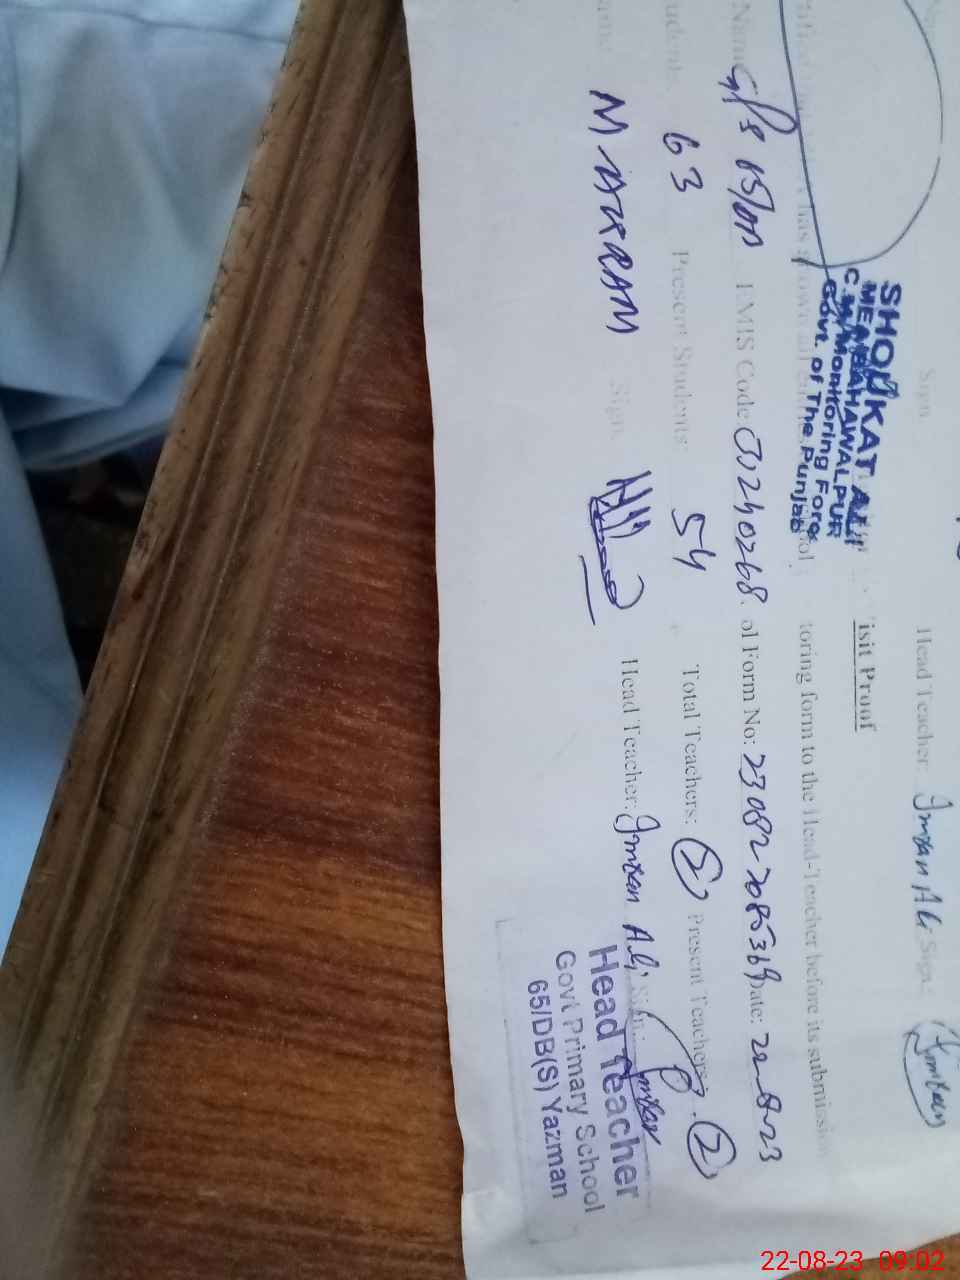 Head Teacher: Imran Ali Sign:
Sign
SHOUKAT ALI
MEA BAHAWALPUR
C.M Monitoring Force
Govt. of The Punjab
isit Proof
toring form to the Head-Teacher before its submission
Name GPS 65/DB EMIS Code: ol Form No: Date: 22-8-23
udent 63 Present Students: 54 Total Teachers: 2 Present Teachers: 2
M. AKRAM Sign. Head Teacher: Imran Ali Sign:
Head Teacher
Govt Primary School
65/DB(S) Yazman
22-08-23 09:02